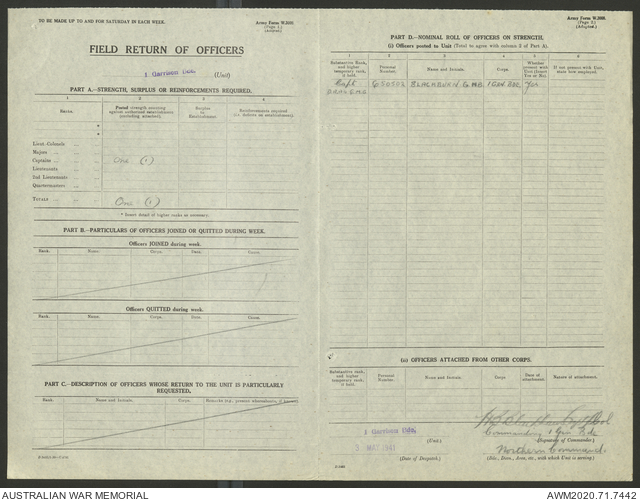 TO BE MADE UP TO AND FOR SATURDAY IN EACH WEEK.
Army Form W.3008.
(Page 1.)
(Adapted.)
FIELD RETURN OF OFFICERS
(Unit)
PART A.—STRENGTH, SURPLUS OR REINFORCEMENTS REQUIRED.
1 2 3 4
Ranks.
Posted strength counting against authorized establishment (excluding attached).
Surplus to Establishment.
Reinforcements required
Lieut-Colonels
Majors
Captains One (1)
Lieutenants
2nd Lieutenants
Quartermasters
TOTALS One (1)
* Insert detail of higher ranks as necessary.
PART B.—PARTICULARS OF OFFICERS JOINED OR QUITTED DURING WEEK.
Officers JOINED during week.
Rank. Name. Corps. Date.
Officers QUITTED during week.
Rank. Name. Corps. Date.
PART C.—DESCRIPTION OF OFFICERS WHOSE RETURN TO THE UNIT IS PARTICULARLY REQUESTED.
Rank. Name and Initials. Corps.
Army Form W.3008.
(Page 2.)
(Adapted.)
PART D.—NOMINAL ROLL OF OFFICERS ON STRENGTH.
(i) Officers posted to Unit (Total to agree with column 2 of Part A).
1 2 3 4 5 6
Substantive Rank, and higher temporary rank, if held.
Personal Number.
Name and Initials.
Corps.
Whether present with Unit (Insert Yes or No).
If not present with Unit, state how employed.
Capt BLACKBURN G.H.B. Yes
(ii) OFFICERS ATTACHED FROM OTHER CORPS.
Substantive rank, and higher temporary rank, if held.
Personal Number.
Name and Initials.
Corps.
Date of attachment.
Nature of attachment.
Commanding
(Unit.) (Signature of Commander)
1941 Northern Command
(Date of Despatch.) (Bde., Divn., Area, etc., with which Unit is serving.)
AUSTRALIAN WAR MEMORIAL AWM2020.71.7442